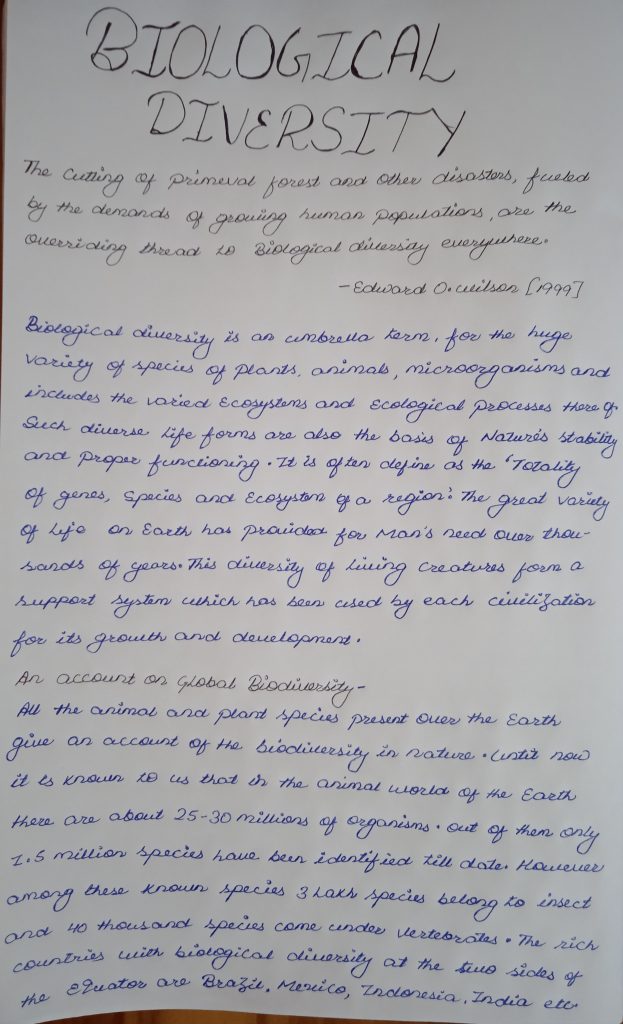 BIOLOGICAL
DIVERSITY
The cutting of primeval forest and other disasters, fueled
by the demands of growing human populations, are the
overriding thread to Biological diversity everywhere.
-Edward O. Wilson [1999]
Biological diversity is an umbrella term, for the huge
variety of species of plants, animals, microorganisms and
includes the varied Ecosystems and Ecological processes there of.
Such diverse life forms are also the basis of Nature's stability
and proper functioning. It is often define as the 'Totality
of genes, Species and Ecosystem of a region'. The great variety
of Life on Earth has provided for Man's need over thou-
sands of years. This diversity of living creatures form a
support system which has been used by each civilization
for its growth and development.
An account on Global Biodiversity-
All the animal and plant species present over the Earth
give an account of the biodiversity in nature. Until now
it is known to us that in the animal world of the Earth
there are about 25-30 millions of organisms. out of them only
1.5 million species have been identified till date. However
among these known species 3 Lakh species belong to insect
and 40 thousand species come under vertebrates. The rich
countries with biological diversity at the two sides of
the equator are Brazil, Mexico, Indonesia, India etc.